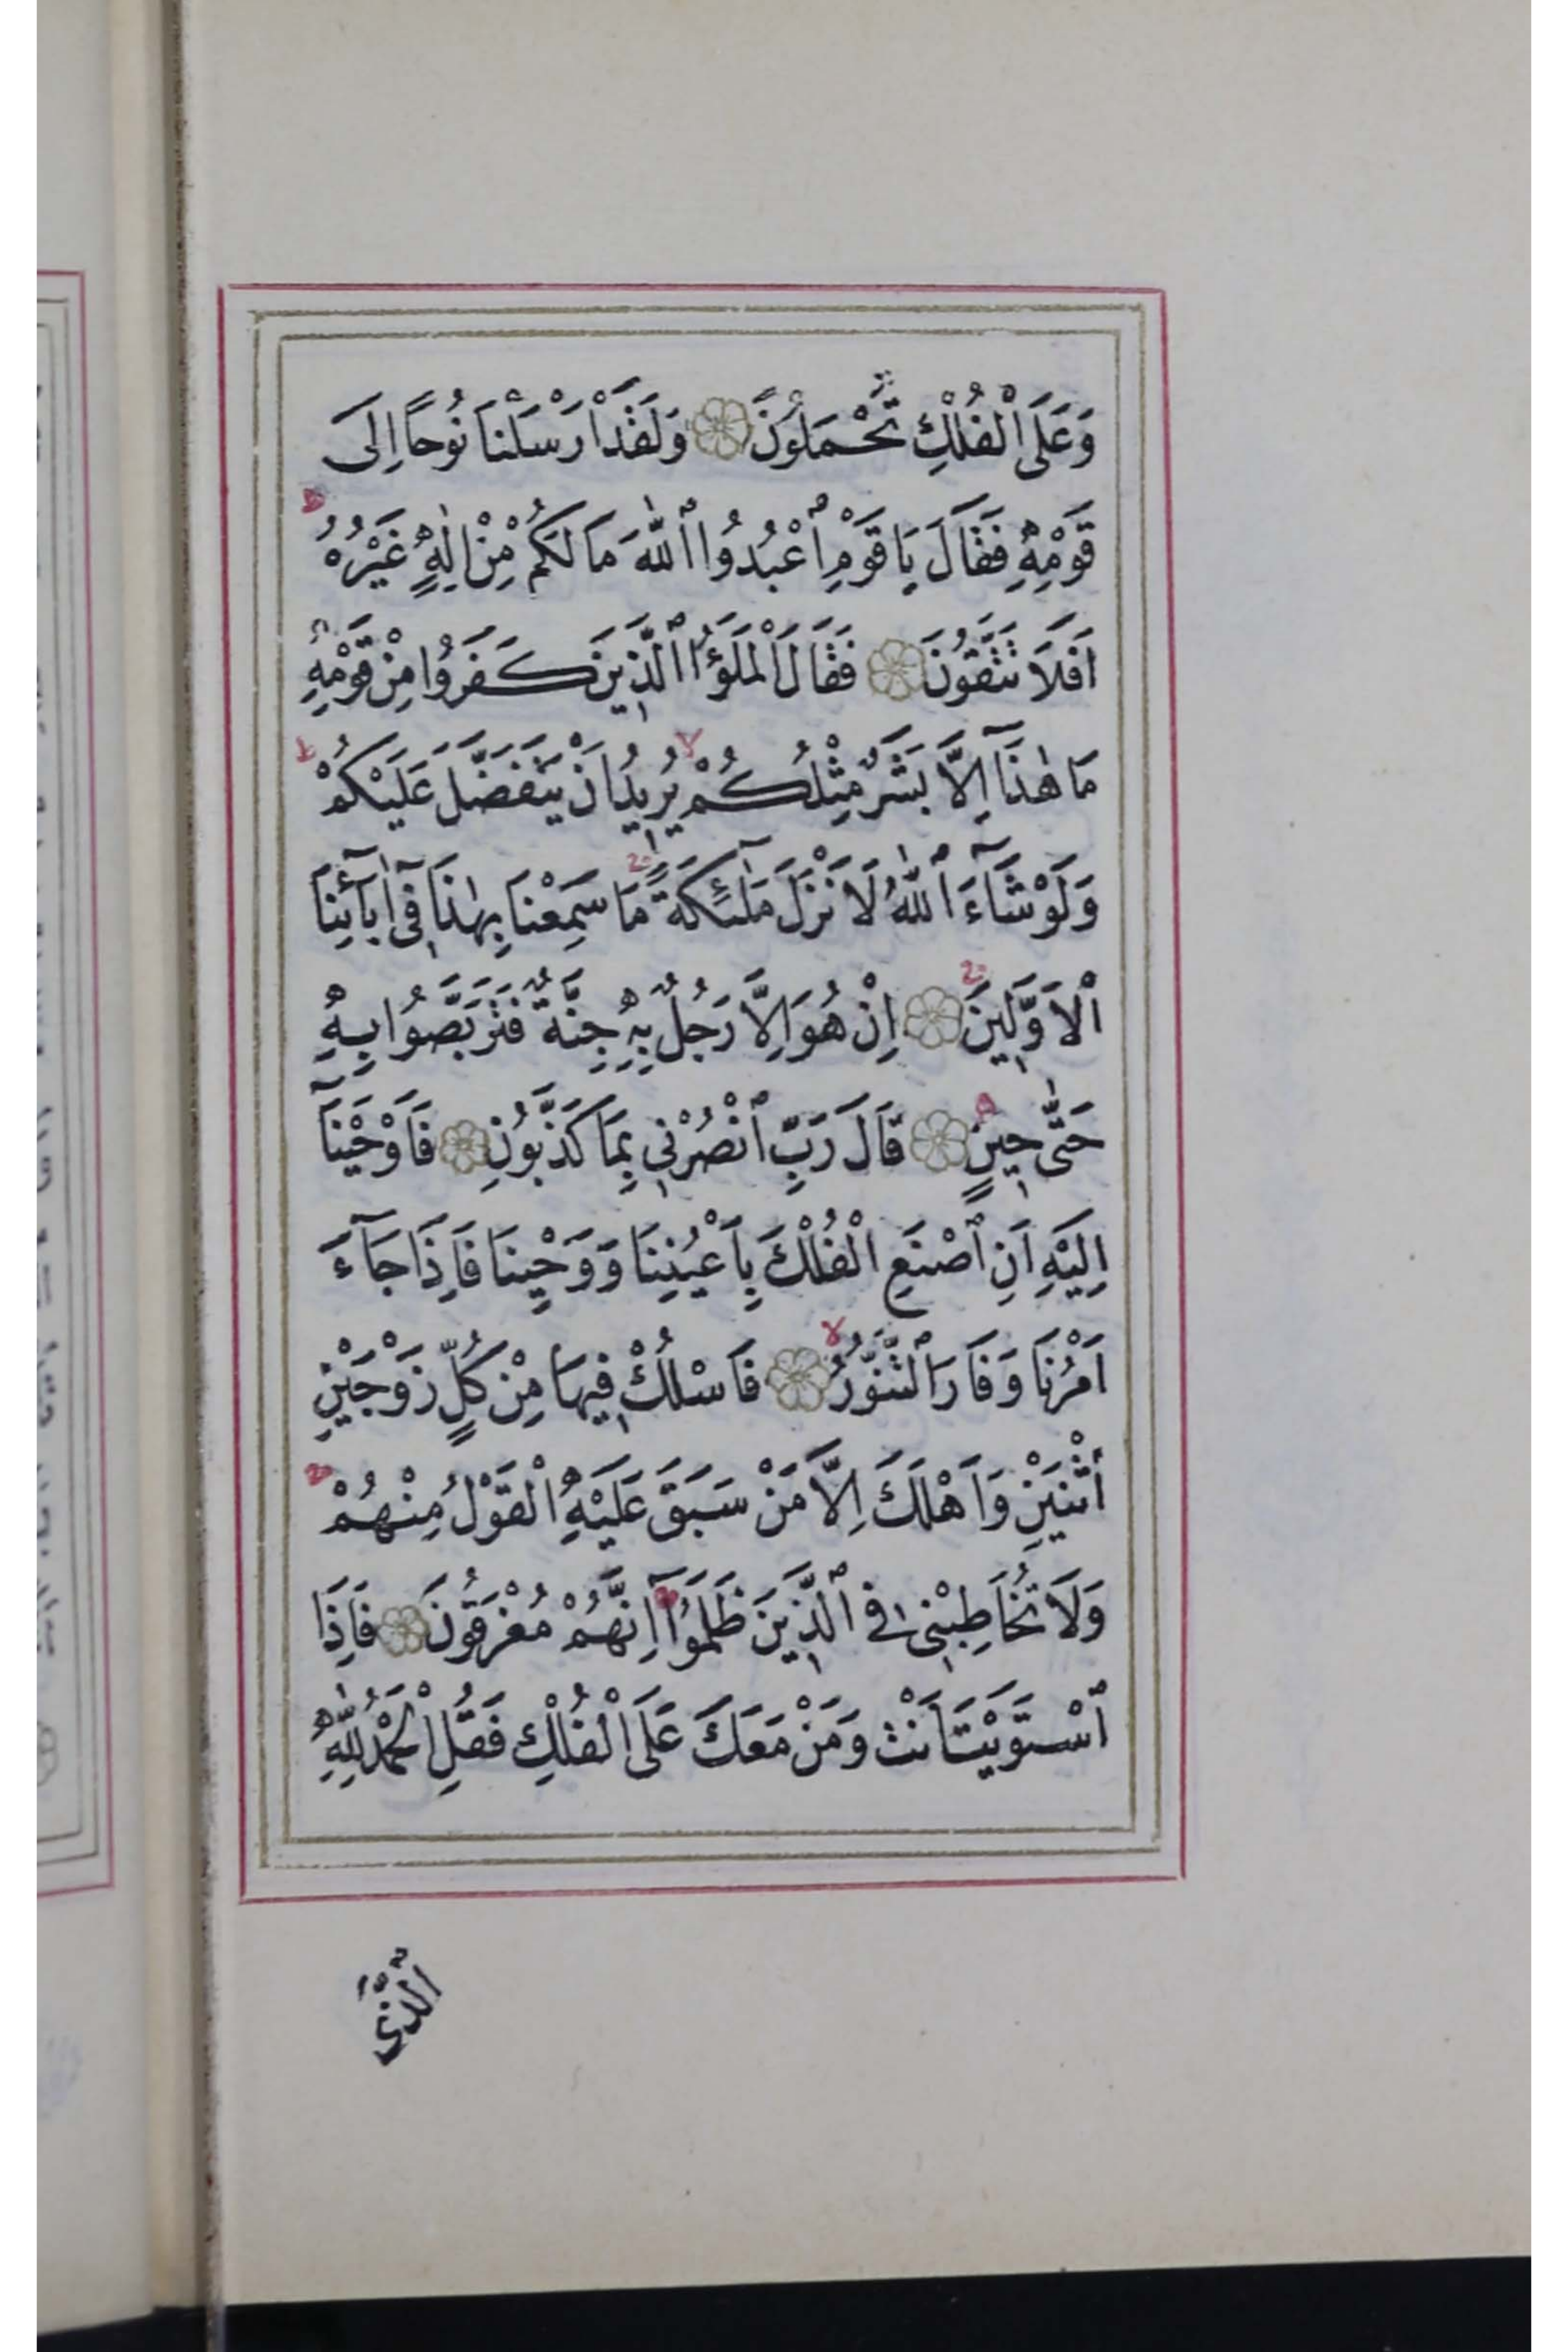 وَعَلَى الْفُلْكِ تُحْمَلُونَ ۝ وَلَقَدْ اَرْسَلْنَا نُوحًا اِلَى
قَوْمِهِ فَقَالَ يَا قَوْمِ اعْبُدُوا اللّٰهَ مَا لَكُمْ مِنْ اِلٰهٍ غَيْرُهُ ط
اَفَلَا تَتَّقُونَ ۝ فَقَالَ الْمَلَؤُا الَّذِينَ كَفَرُوا مِنْ قَوْمِهِ
مَا هٰذَا اِلَّا بَشَرٌ مِثْلُكُمْ لا يُرِيدُ اَنْ يَتَفَضَّلَ عَلَيْكُمْ ط
وَلَوْ شَآءَ اللّٰهُ لَاَنْزَلَ مَلٰٓئِكَةً ج مَا سَمِعْنَا بِهٰذَا فِٓى اٰبَآئِنَا
الْاَوَّلِينَ ج ۝ اِنْ هُوَ اِلَّا رَجُلٌ بِهِ جِنَّةٌ فَتَرَبَّصُوا بِهِ
حَتّٰى حِينٍ ۝ قَالَ رَبِّ انْصُرْنِى بِمَا كَذَّبُونِ ۝ فَاَوْحَيْنَآ
اِلَيْهِ اَنِ اصْنَعِ الْفُلْكَ بِاَعْيُنِنَا وَوَحْيِنَا فَاِذَا جَآءَ
اَمْرُنَا وَفَارَ التَّنُّورُ لا ۝ فَاسْلُكْ فِيهَا مِنْ كُلٍّ زَوْجَيْنِ
اثْنَيْنِ وَاَهْلَكَ اِلَّا مَنْ سَبَقَ عَلَيْهِ الْقَوْلُ مِنْهُمْ ج
وَلَا تُخَاطِبْنِى فِى الَّذِينَ ظَلَمُوا ج اِنَّهُمْ مُغْرَقُونَ ۝ فَاِذَا
اسْتَوَيْتَ اَنْتَ وَمَنْ مَعَكَ عَلَى الْفُلْكِ فَقُلِ الْحَمْدُ لِلّٰهِ
الَّذِى